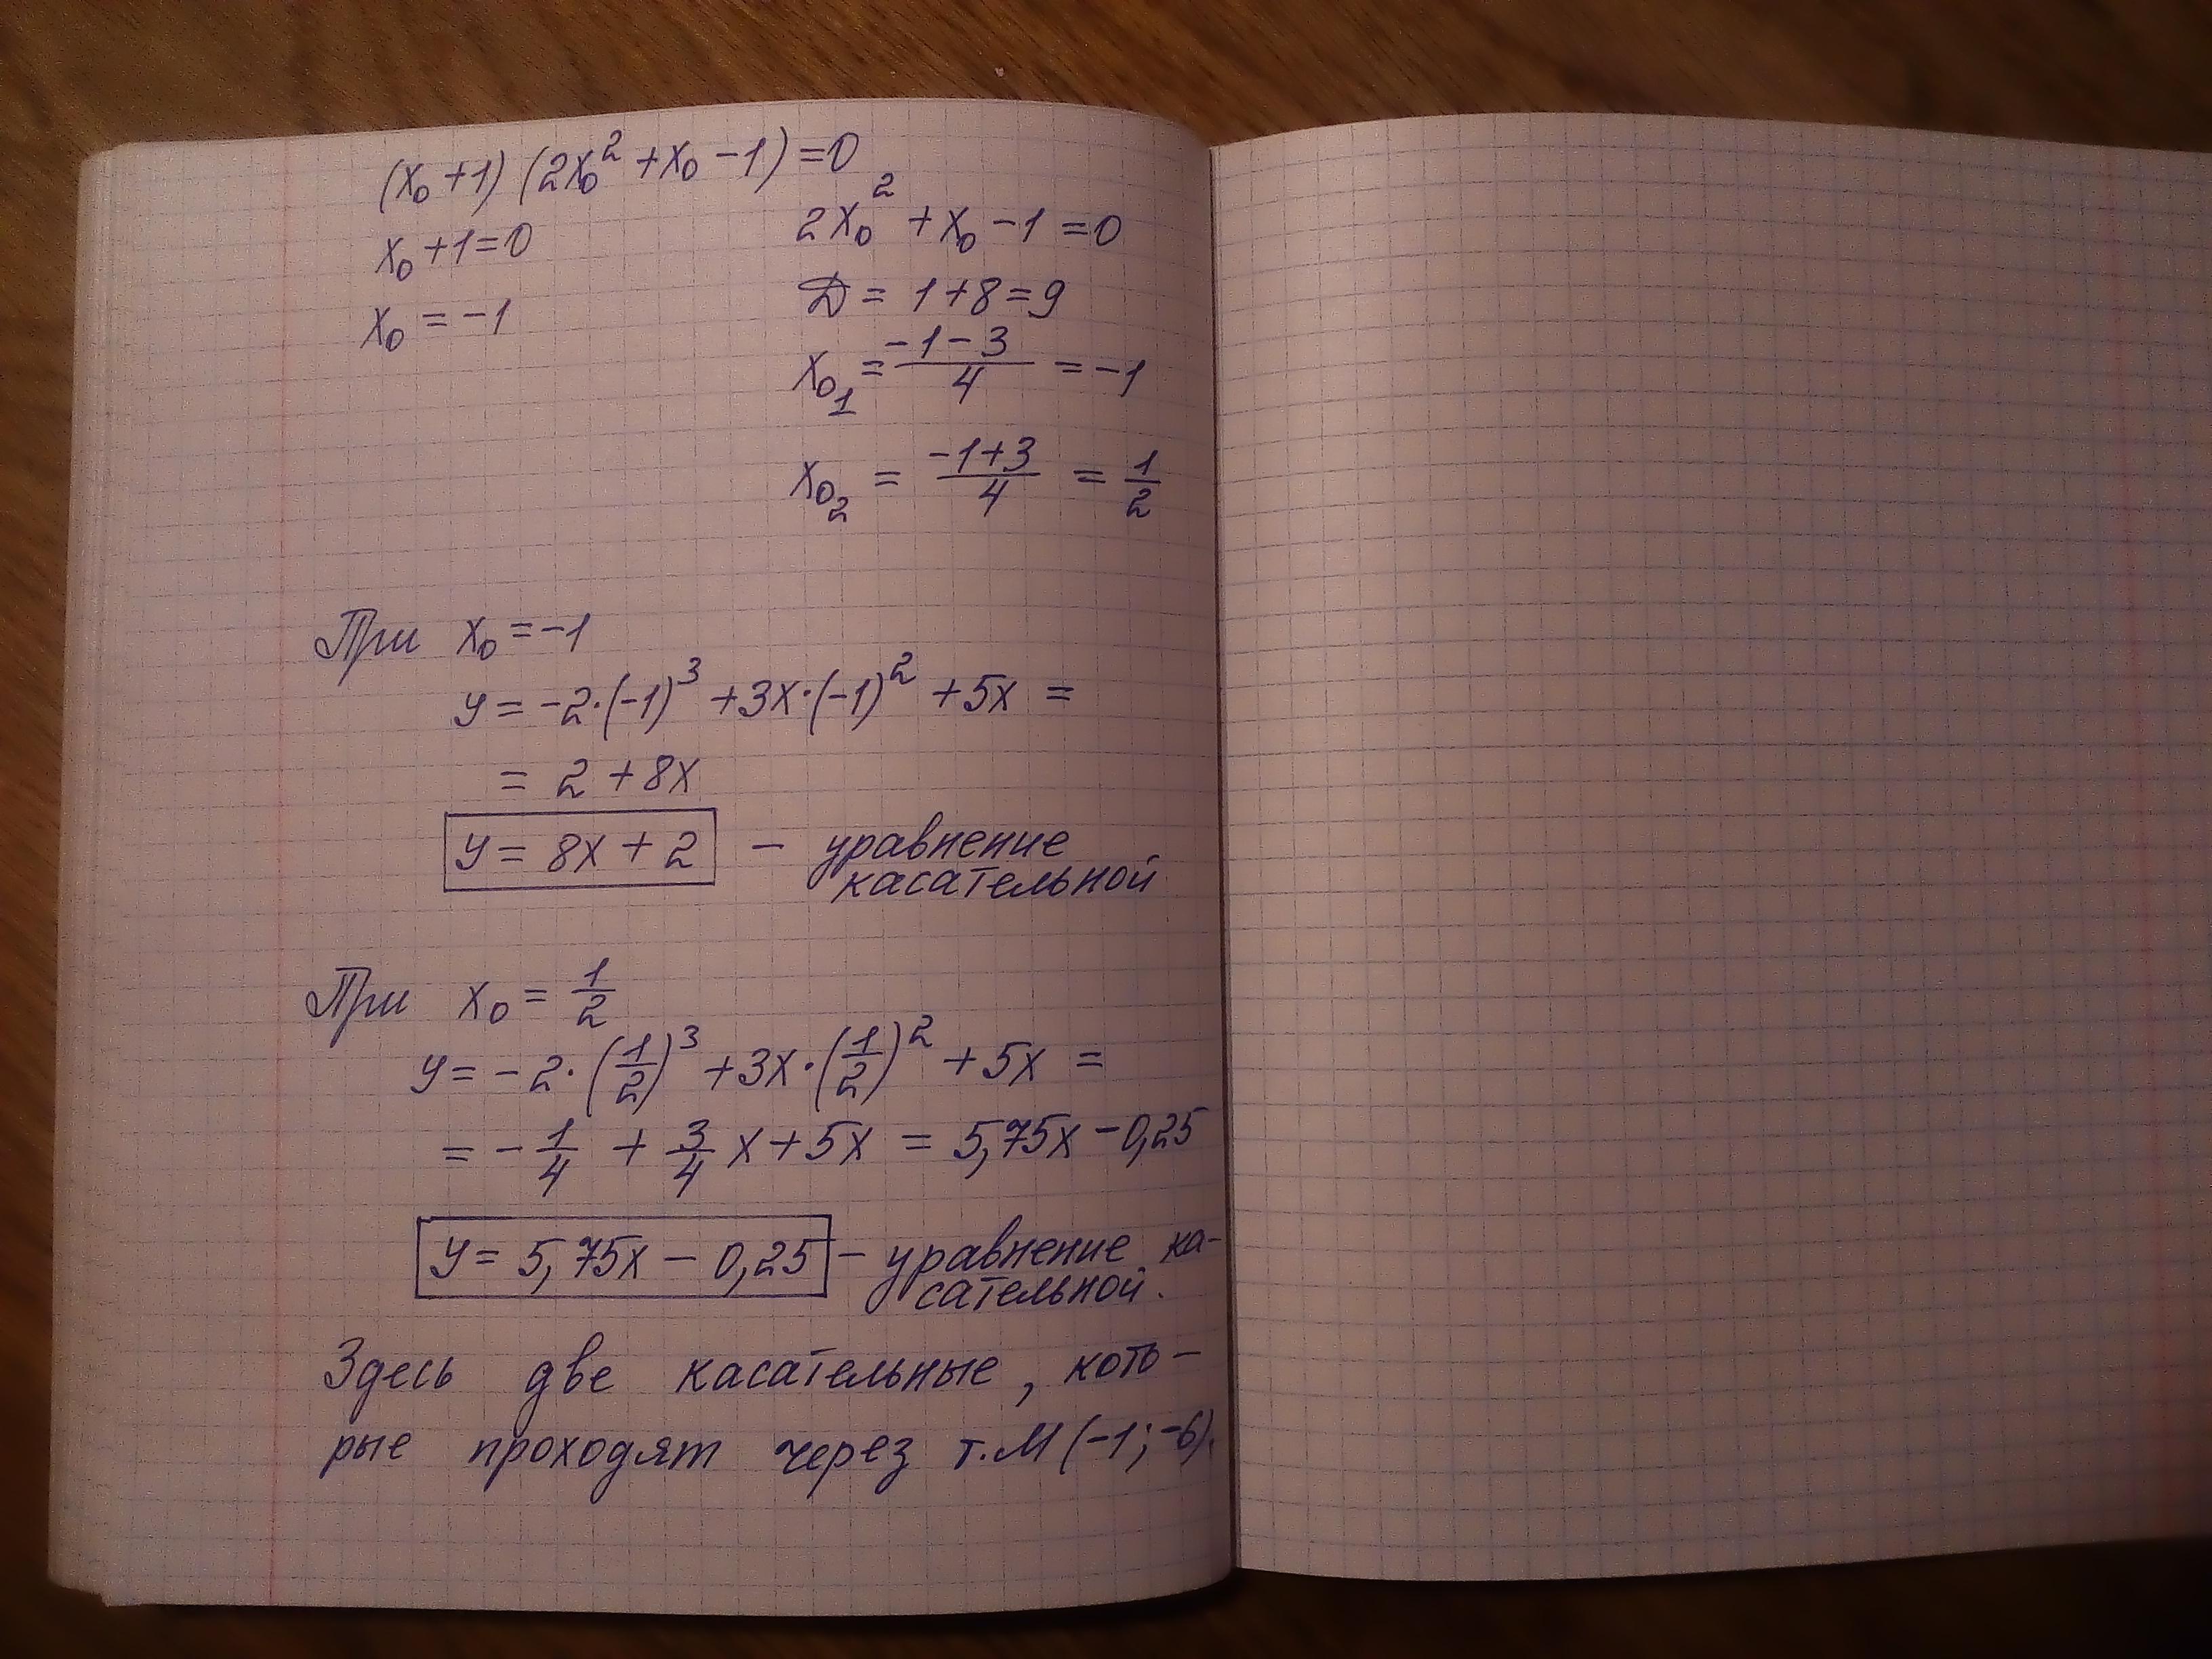 (x₀+1)(2x₀²+x₀-1)=0
x₀+1=0
2x₀²+x₀-1=0
x₀=-1
D=1+8=9
x₀₁=(-1-3)/4=-1
x₀₂=(-1+3)/4=1/2
При x₀=-1
y=-2·(-1)³+3x·(-1)²+5x=
=2+8x
y=8x+2 - уравнение
касательной
При x₀=1/2
y=-2·(1/2)³+3x·(1/2)²+5x=
=-1/4+3/4x+5x=5,75x-0,25
y=5,75x-0,25 - уравнение ка-
сательной.
Здесь две касательные, кото-
рые проходят через т.М(-1;-6).